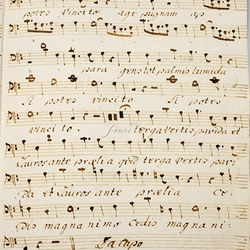 potes vincito age pugnam a
para gens tot palmis tumida
Si potes vincito Si potes
vincito. terga vertis pavida et
Tauros ante prælia quid terga vertis pavi
da et Tauros ante prælia ce-
dis magnanimo Cedis magnani-
Da Capo